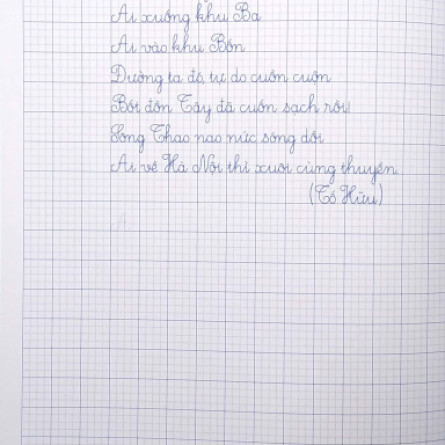 Ai xuống khu Ba
Ai vào khu Bốn
Đường ta đó, tự do cuồn cuộn
Bót đồn Tây đã cuốn sạch rồi!
Sông Thao nao nức sóng dồi
Ai về Hà Nội thì xuôi cùng thuyền
(Tố Hữu)